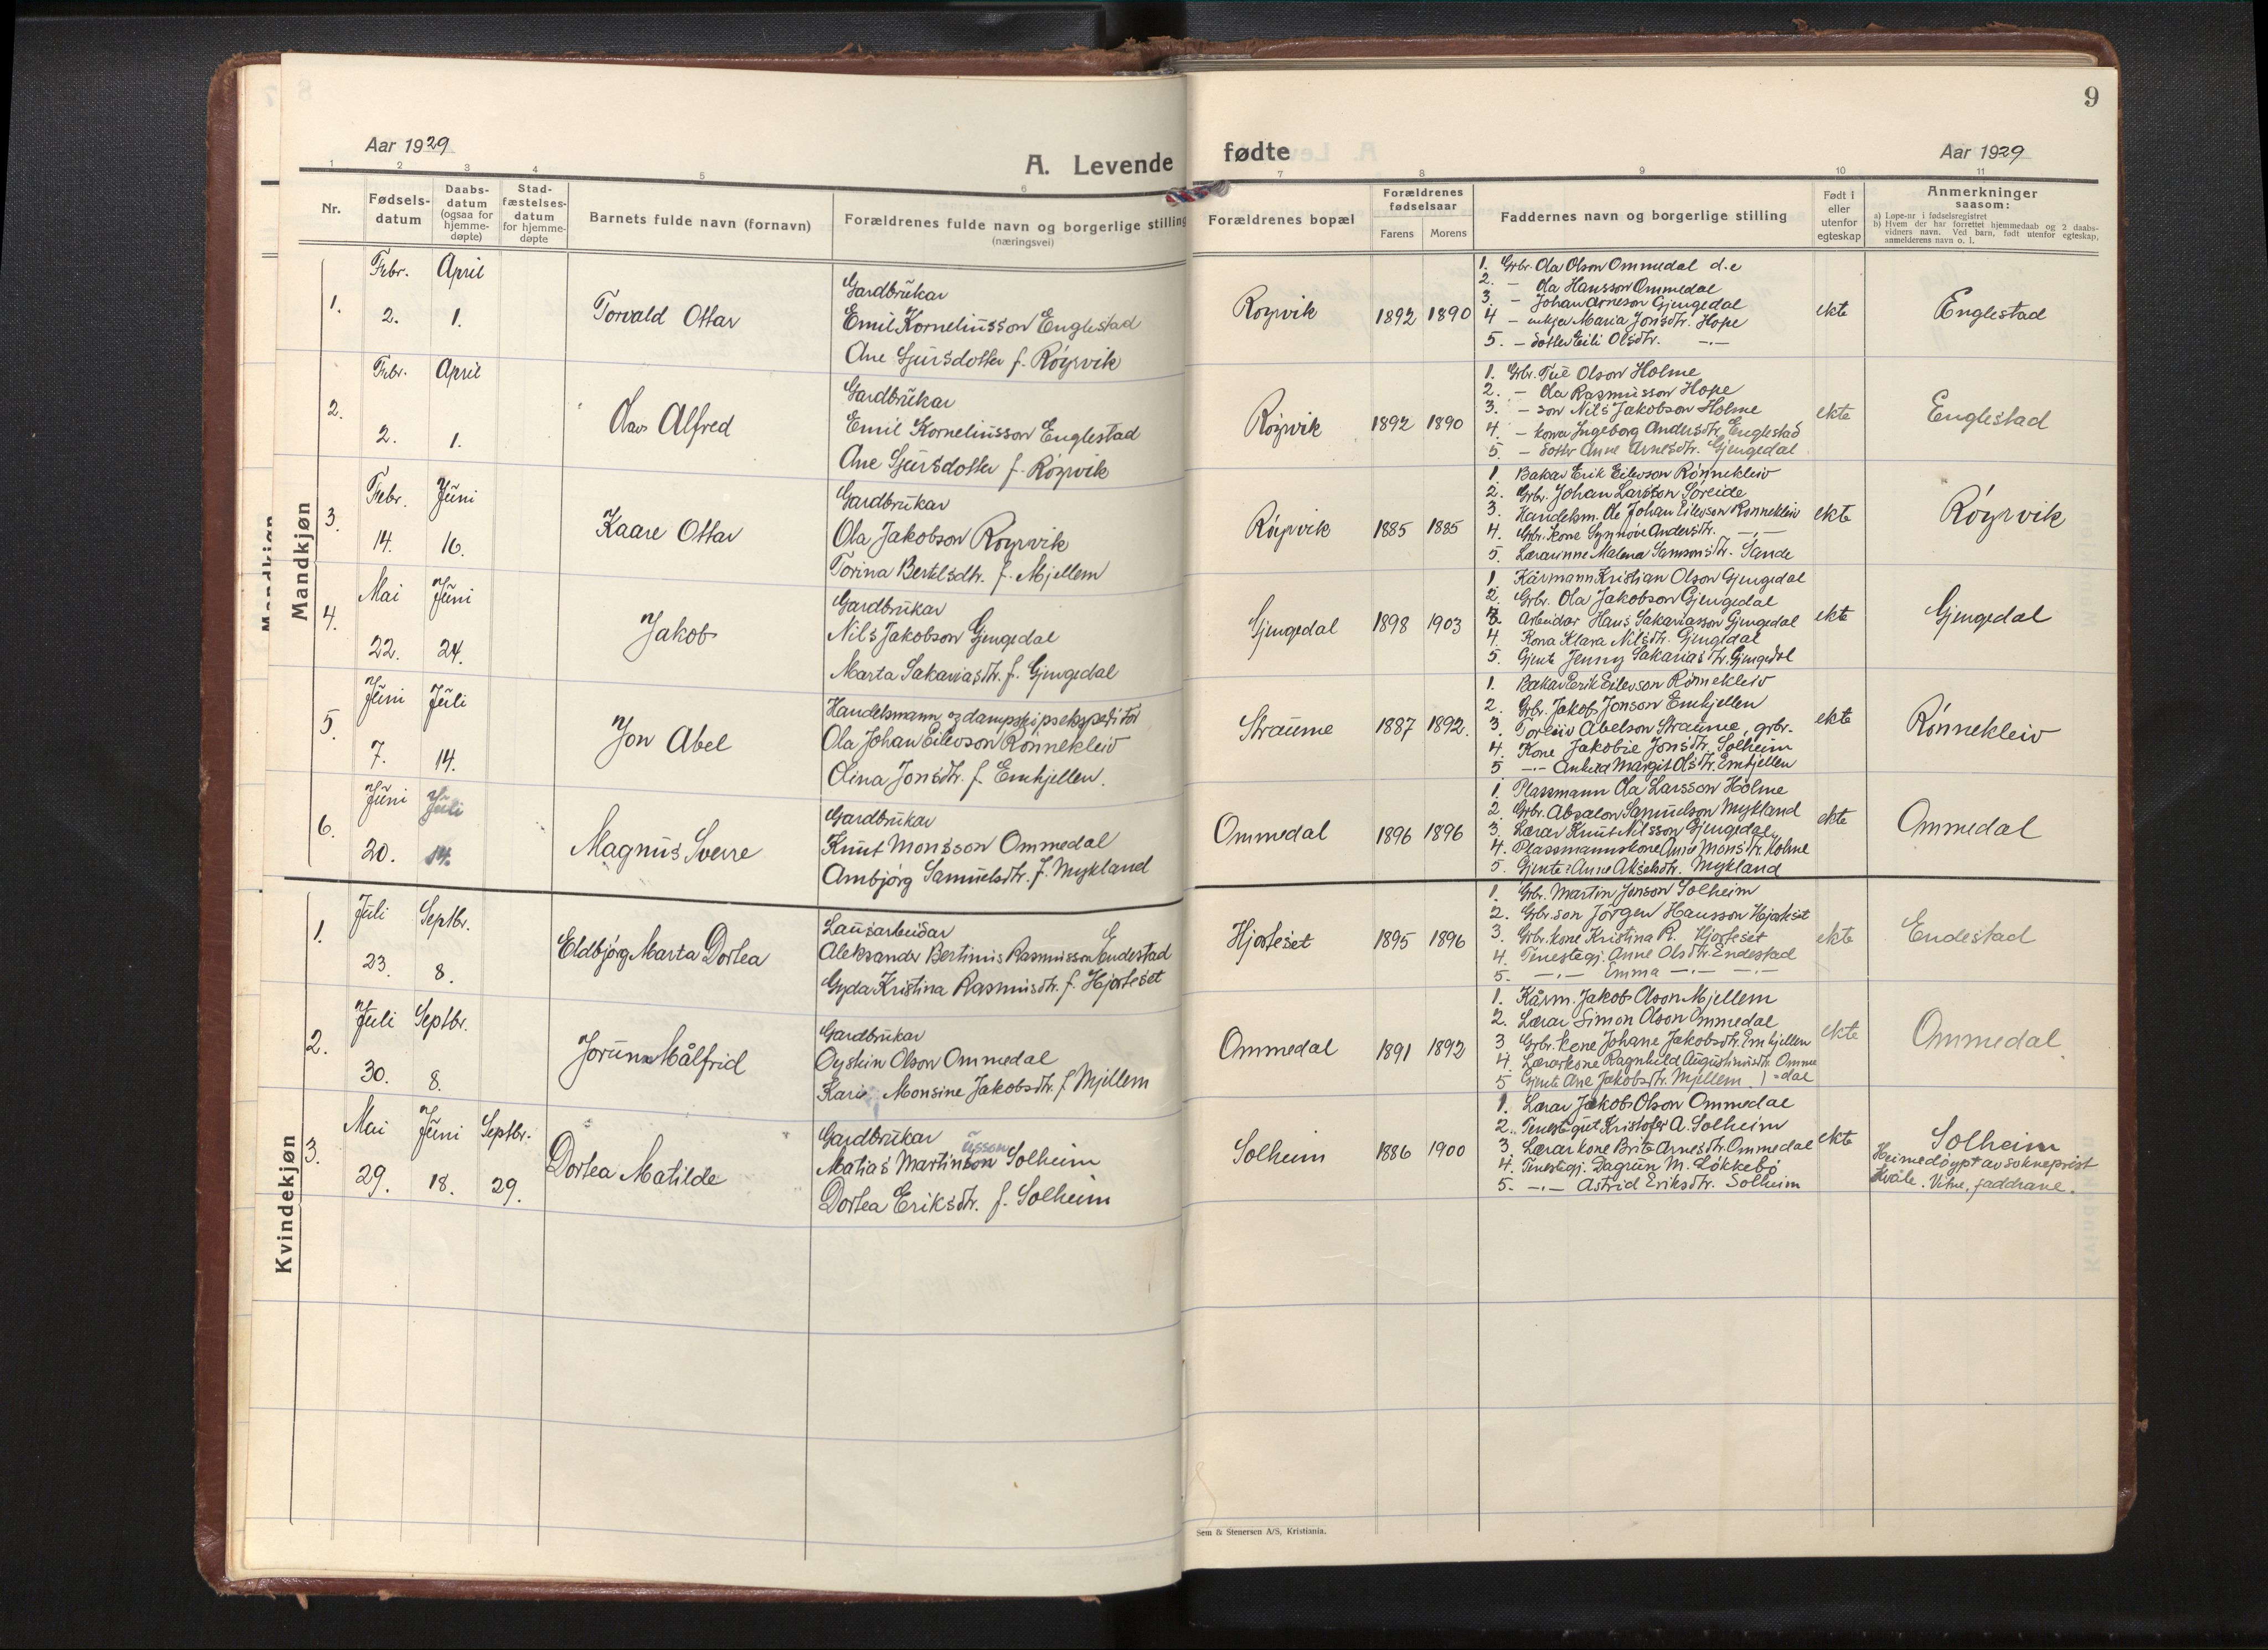 9
Aar 1929
A. Levende
fødte
Aar 1929
1 2 3 4 5 6 7 8 9 10 11
Nr.
Fødsels-
datum
Daabs-
datum
(ogsaa for
hjemme-
døpte)
Stad-
fæstelses-
datum
for hjemme-
døpte
Barnets fulde navn (fornavn)
Forældrenes fulde navn og borgerlige stilling
(næringsvei)
Forældrenes bopæl
Forældrenes
fødselsaar
Farens Morens
Faddernes navn og borgerlige stilling
Født i
eller
utenfor
egteskap
Anmerkninger
saasom:
a) Løpe-nr i fødselsregistret
b) Hvem der har forrettet hjemmedaab og 2 daabs-
vidners navn. Ved barn, født utenfor egteskap,
anmelderens navn o. l.
Mandkjøn
Mandkjøn
1.
Febr. April
2. 1.
Torvald Ottar
Gardbrukar
Emil Korneliusson Englestad
Ane Sjursdotter f. Røyrvik
Røyrvik
1892 1890
1. Grbr. Ola Olson Ommedal d.e
2. — Ola Hansson Ommedal
3. — Johan Arneson Gjengedal
4 — enkja Maria Jonsdtr. Hope
5. — dotter Eili Olsdtr. —.—
ekte
Englestad
2.
Febr. April
2. 1.
Olav Alfred
Gardbrukar
Emil Korneliusson Englestad
Ane Sjursdotter f. Røyrvik
Røyrvik
1892 1890
1. Grbr. Tue Olson Holme
2. — Ola Rasmusson Hope
3. — son Nils Jakobson Holme
4. — kona Ingeborg Andersdtr. Englestad
5. — dotter Anne Arnesdtr. Gjengedal
ekte
Englestad
3.
Febr. Juni
14. 16.
Kaare Ottar
Gardbrukar
Ola Jakobson Røyrvik
Torina Bertelsdtr. f. Mjellem
Røyrvik
1885 1885
1. Bakar Erik Eilevson Rønnekleiv
2. Grbr. Johan Larsson Søreide
3. Handelsm. Ole Johan Eilevson Rønnekleiv
4. Grbr. kone Synnøve Andersdtr. —.—
5. Lærarinne Malena Samsonsdtr. Sande
ekte
Røyrvik
4.
Mai Juni
22. 24.
Jakob
Gardbrukar
Nils Jakobson Gjengedal
Marta Sakariasdtr. f. Gjengedal
Gjengedal
1898 1903
1. Kårmann Kristian Olson Gjengedal
2. Grbr. Ola Jakobson Gjengedal
3. Arbeidar Hans Sakariasson Gjengedal
4. Kona Klara Nilsdtr. Gjengedal
5. Gjente Jenny Sakariasdtr. Gjengedal
ekte
Gjengedal
5.
Juni Juli
7. 14.
Jon Abel
Handelsmann og dampskipsekspeditør
Ola Johan Eilevson Rønnekleiv
Olina Jonsdtr. f. Emhjellen.
Straume
1887 1892.
1. Bakar Erik Eilevson Rønnekleiv
2. Grbr. Jakob Jonson Emhjellen
3. Torleiv Abelson Straume, grbr.
4. Kone Jakobie Jonsdtr. Solheim
5 —.— Margit Olsdtr. Emhjellen
ekte
Rønnekleiv
6.
Juni Juli
20. 14.
Magnus Sverre
Gardbrukar
Knut Monsson Ommedal
Ambjørg Samuelsdtr. f. Mykland
Ommedal
1896 1896
1. Plassmann Ola Larsson Holme
2. Grbr. Absalon Samuelson Mykland
3. Lærar Knut Nilsson Gjengedal
4. Plassmannskone Anne Monsdtr. Holme
5. Gjente: Anne Akselsdtr. Mykland
ekte
Ommedal
Kvindekjøn
1.
Juli Septbr.
23. 8.
Eldbjørg Marta Dortea
Lausarbeidar
Aleksander Bertinus Rasmusson Endestad
Gyda Kristina Rasmusdtr. f. Hjorteset
Hjorteset
1895 1896
1. Grbr. Martin Jonson Solheim
2. Grbr. son Jørgen Hansson Hjorteset
3. Grbr. kone Kristina R. Hjorteset
4. Tenestegj. Anne Olsdtr. Endestad
5. —.— Emma —.— —.—
ekte
Endestad
2.
Juli Septbr.
30. 8.
Jorunn Målfrid
Gardbrukar
Øystein Olson Ommedal
Kari Monsine Jakobsdtr. f Mjellem
Ommedal
1891 1892
1. Kårm. Jakob Olson Mjellem
2. Lærar Simon Olson Ommedal
3 Grbr. kone Johane Jakobsdtr. Emhjellen
4. Lærarkone Ragnhild Augustinusdtr. Omme
5 Gjente Ane Jakobsdtr. Mjellem. ) =dal
ekte
Ommedal
3.
Mai Juni Septbr.
29. 18. 29.
Dortea Matilde
Gardbrukar
usson
Matias Martinson Solheim
Dortea Eriksdtr. f. Solheim
Solheim
1886 1900
1. Lærar Jakob Olson Ommedal
2. Tenestgut Kristofer A. Solheim
3. Lærarkone Brite Arnesdtr. Ommedal
4. Tenestegj. Dagrun M. Løkkebø
5. —.— Astrid Eriksdtr. Solheim
ekte
Solheim
Heimedøypt av sokneprest
Kvåle. Vitne, faddrane.
Sem & Stenersen A/S, Kristiania.